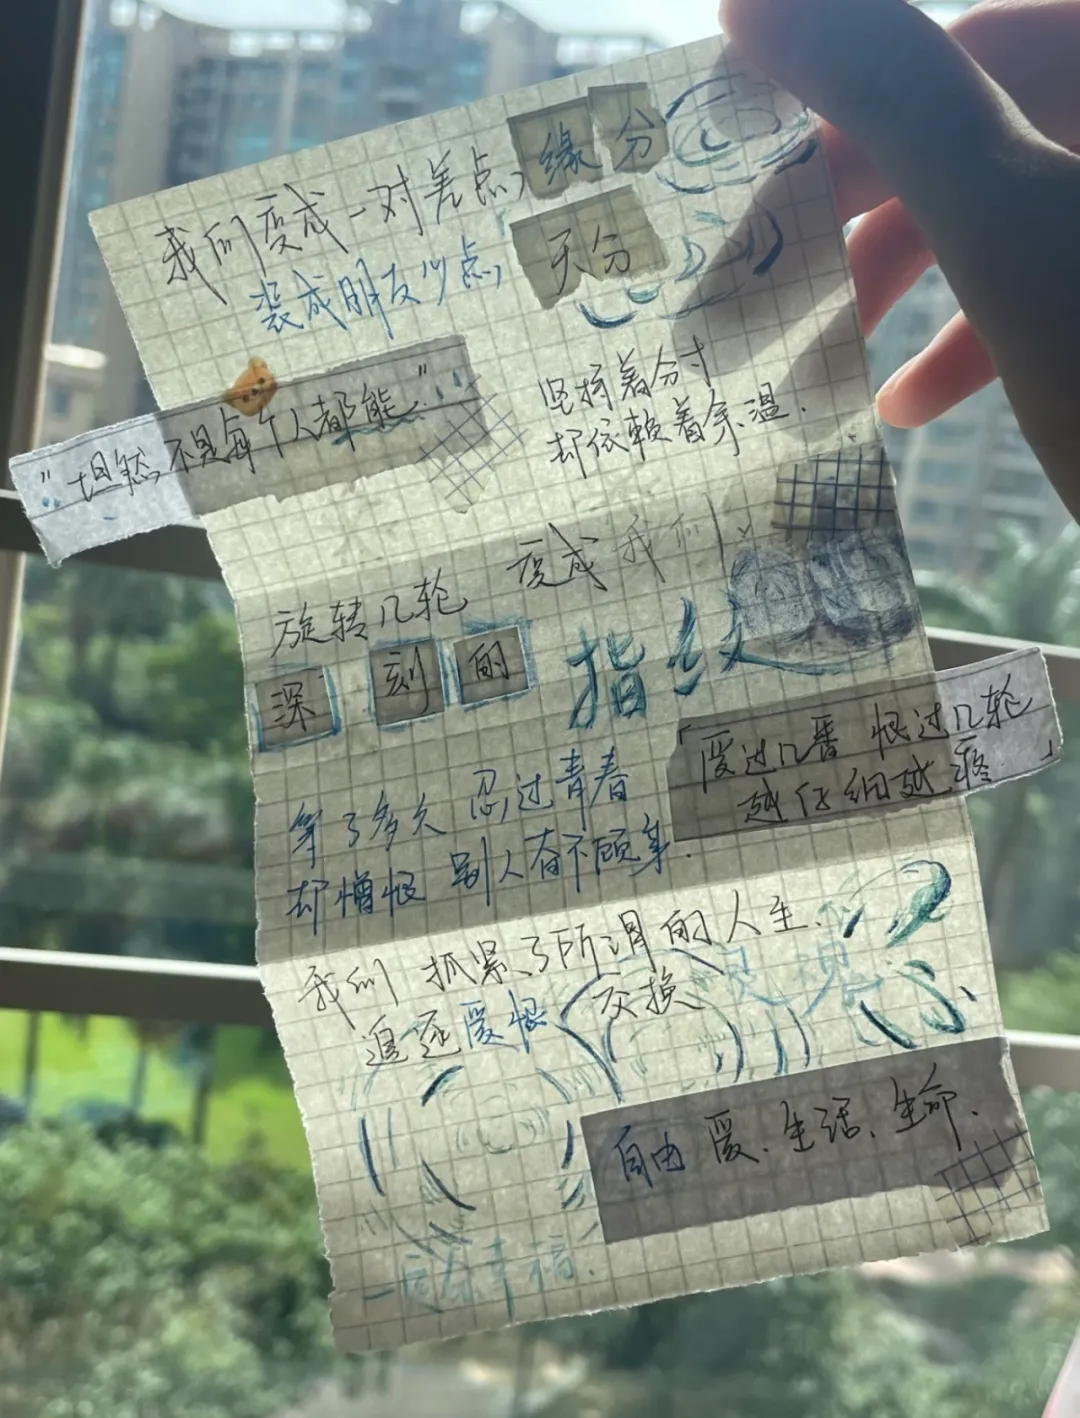 我们变成一对差点,缘分
装成朋友少点,天分
"坦然,不是每个人都能"
坚持着分寸
却依赖着余温.
旋转几轮 变成我们
深刻的指纹
等了多久 忍过青春
却憎恨 别人奋不顾身.
「爱过几番 恨过几轮
越仔细越疼.」
我们 抓紧了所谓的人生.
追逐爱恨 交换 灵魂
自由 爱.生活.生命.
幸福.